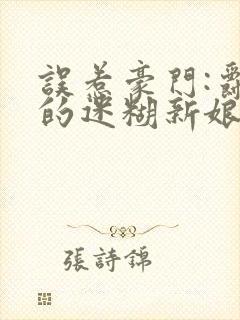 誤惹豪門:
的迷糊新娘
張詩錦